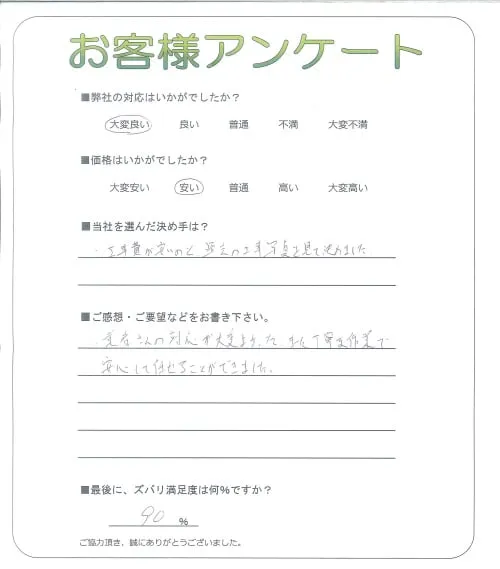 お客様アンケート
■弊社の対応はいかがでしたか？
大変良い 良い 普通 不満 大変不満
■価格はいかがでしたか？
大変安い 安い 普通 高い 大変高い
■当社を選んだ決め手は？
・工事費が安いのと過去の工事写真を見て決めました
■ご感想・ご要望などをお書き下さい。
業者さんの対応が大変よかった。また丁寧な作業で
安心して任せることができました。
■最後に、ズバリ満足度は何%ですか？
90 %
ご協力頂き、誠にありがとうございました。